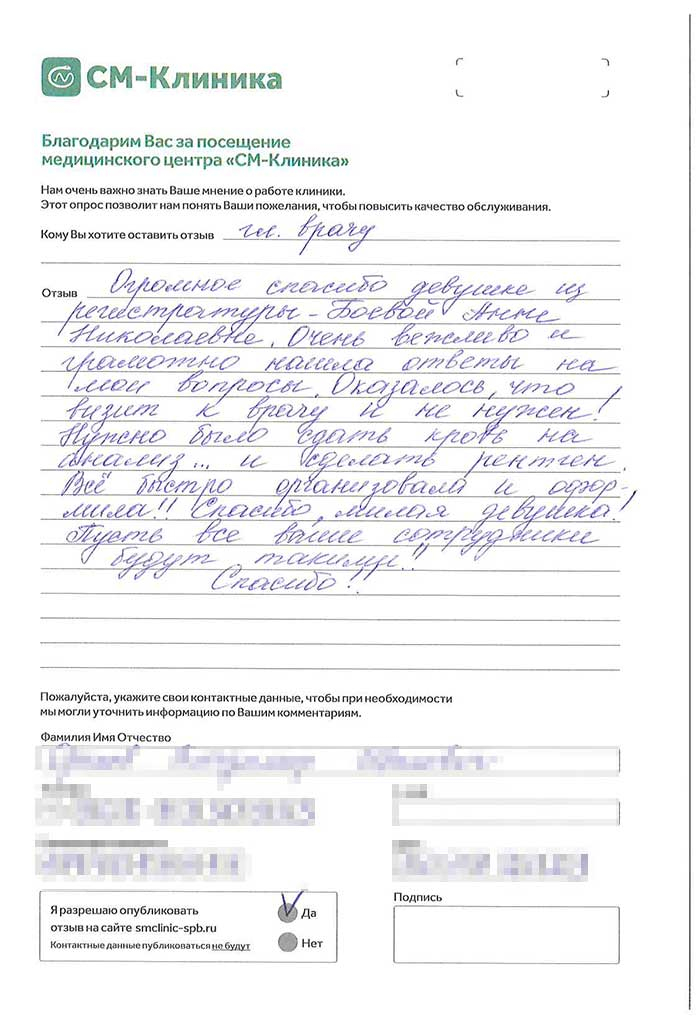 СМ-Клиника
Благодарим Вас за посещение
медицинского центра «СМ-Клиника»
Нам очень важно знать Ваше мнение о работе клиники.
Этот опрос позволит нам понять Ваши пожелания, чтобы повысить качество обслуживания.
Кому Вы хотите оставить отзыв гл. врачу
Отзыв Огромное спасибо девушке из
регистратуры - Боевой Анне
Николаевне. Очень вежливо и
грамотно нашла ответы на
мои вопросы. Оказалось, что
визит к врачу и не нужен!
Нужно было сдать кровь на
анализ... и сделать рентген.
Всё быстро организовала и офор-
мила!! Спасибо, милая девушка!
Пусть все ваши сотрудники
будут такими!!
Спасибо!!
Пожалуйста, укажите свои контактные данные, чтобы при необходимости
мы могли уточнить информацию по Вашим комментариям.
Фамилия Имя Отчество
Подпись
Я разрешаю опубликовать
отзыв на сайте smclinic-spb.ru
Контактные данные публиковаться не будут
Да
Нет